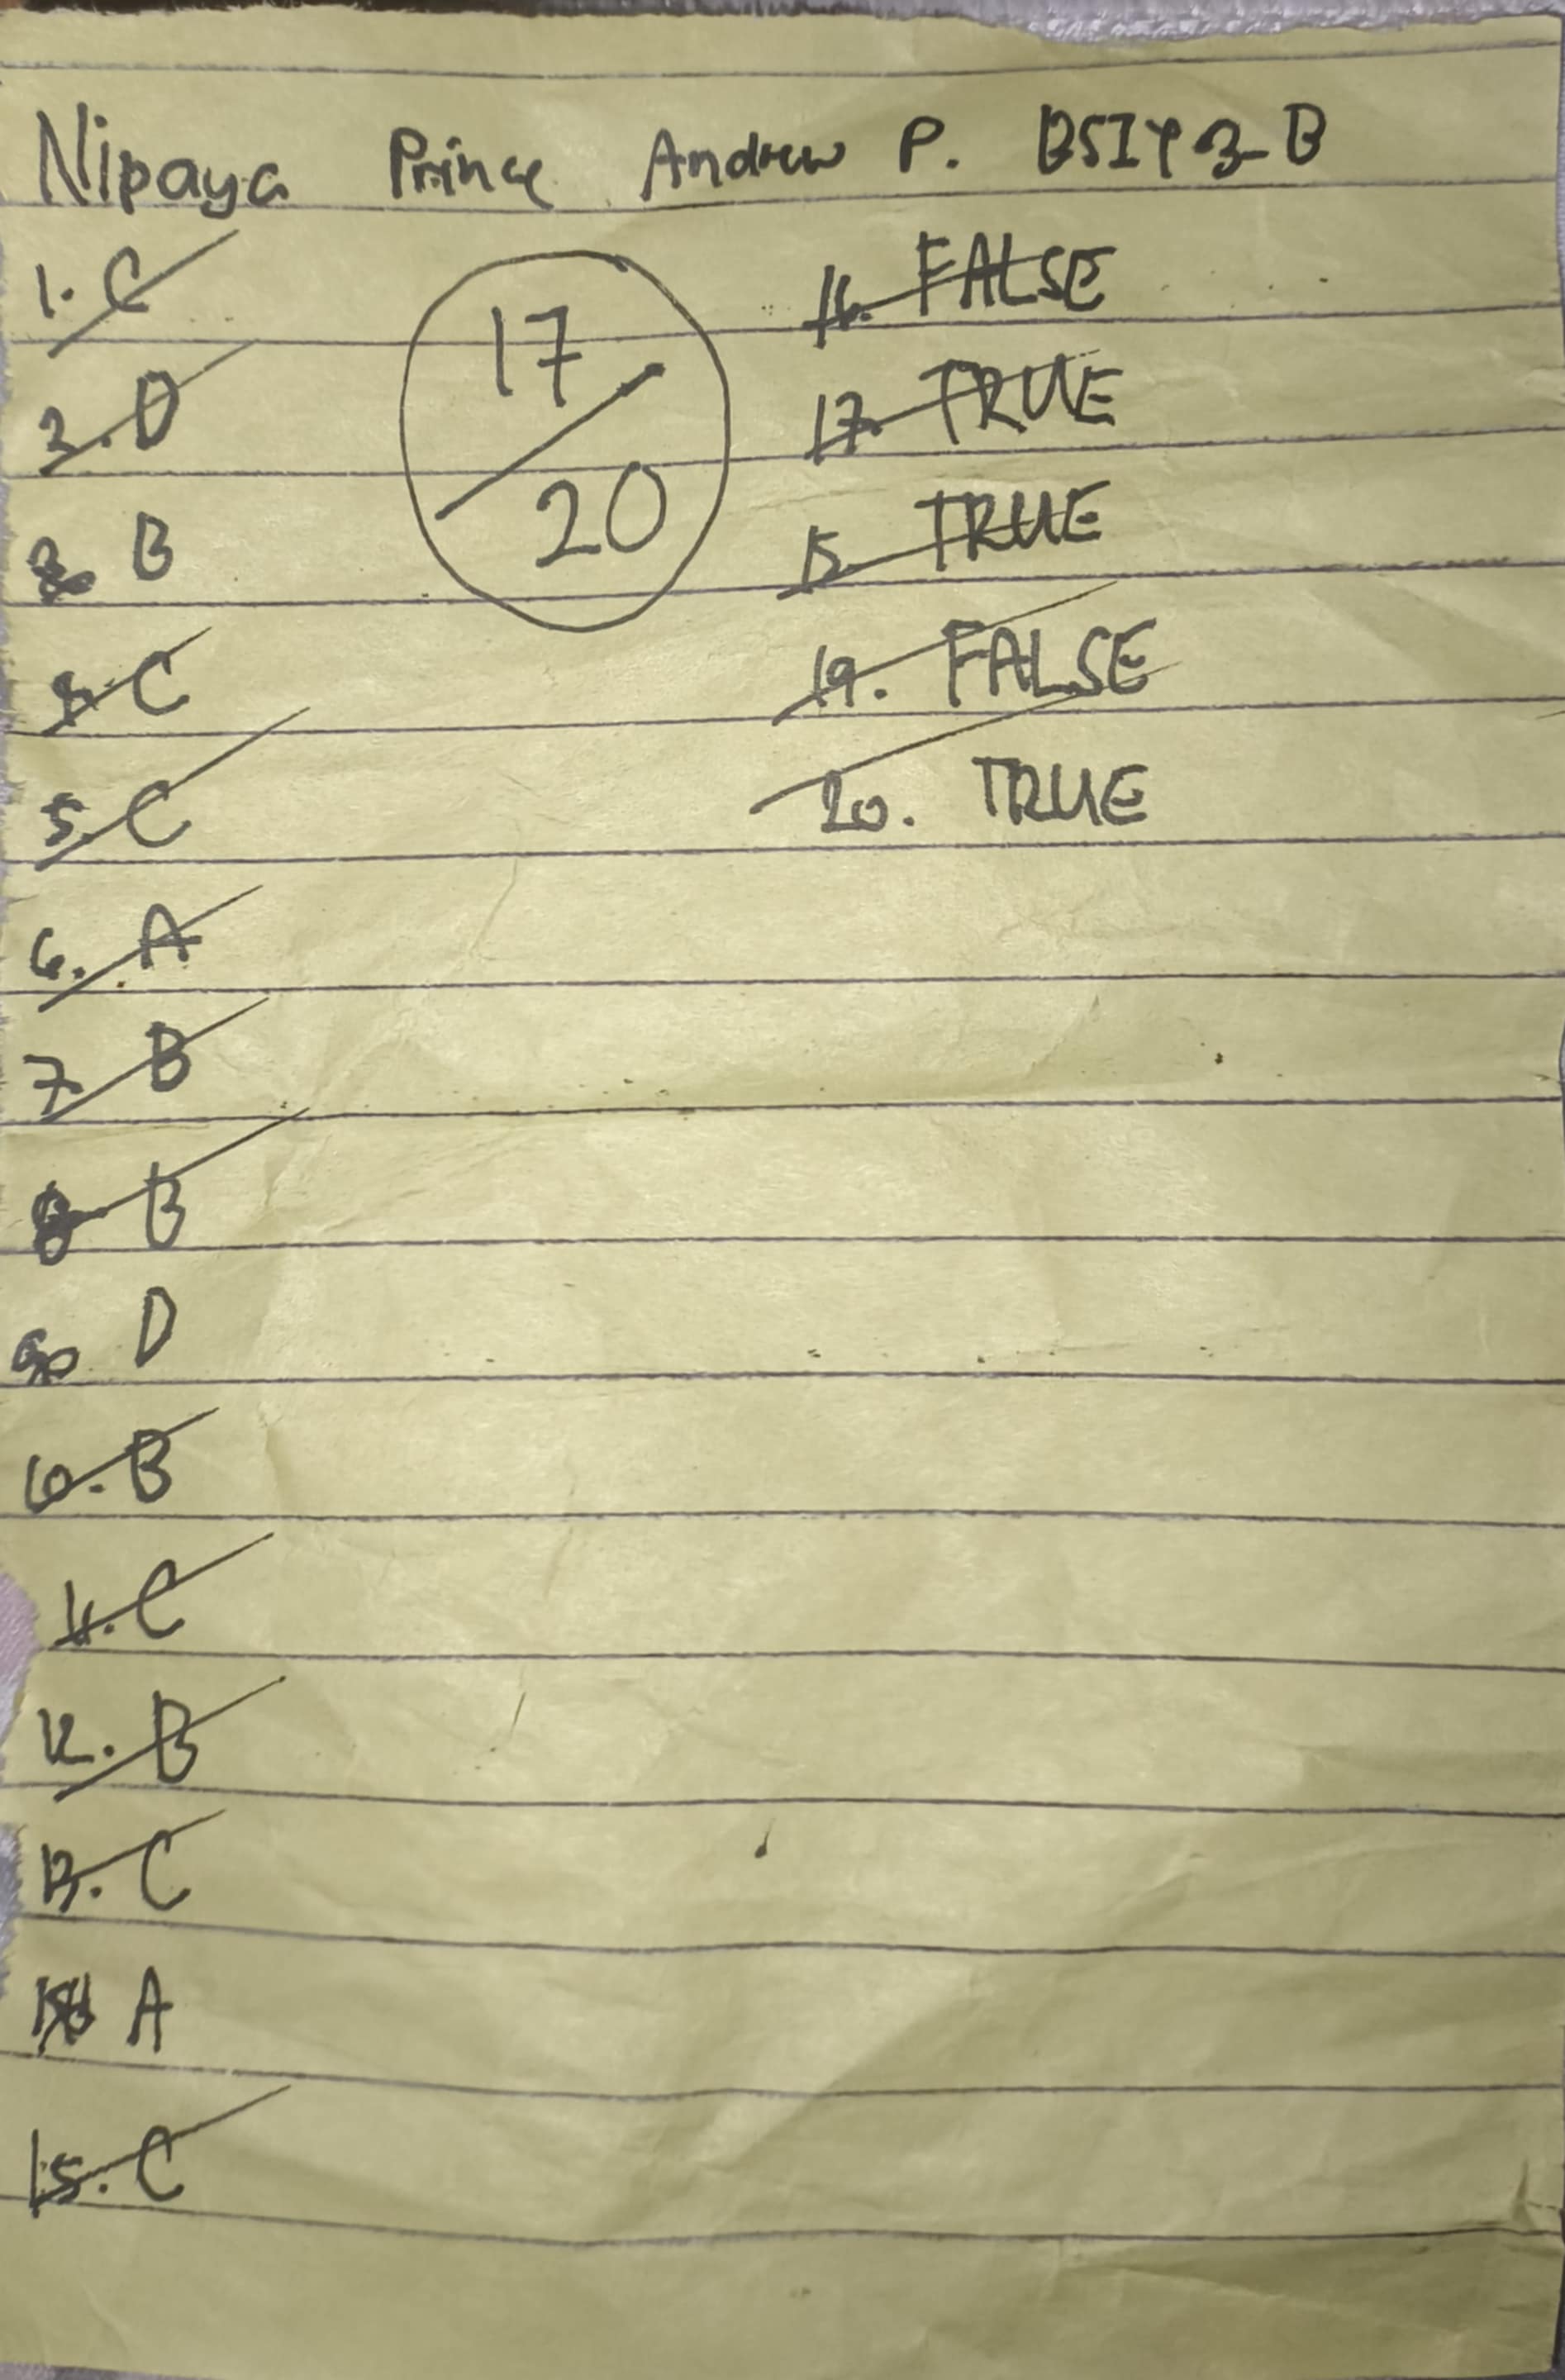 Nipaya Prince Andrew P. BSIT 3-B
1. C
2. D
3. B
4. C
5. C
6. A
7. B
8. B
9. D
10. B
11. C
12. B
13. C
14. A
15. C
17
20
16. FALSE
17. TRUE
18. TRUE
19. FALSE
20. TRUE